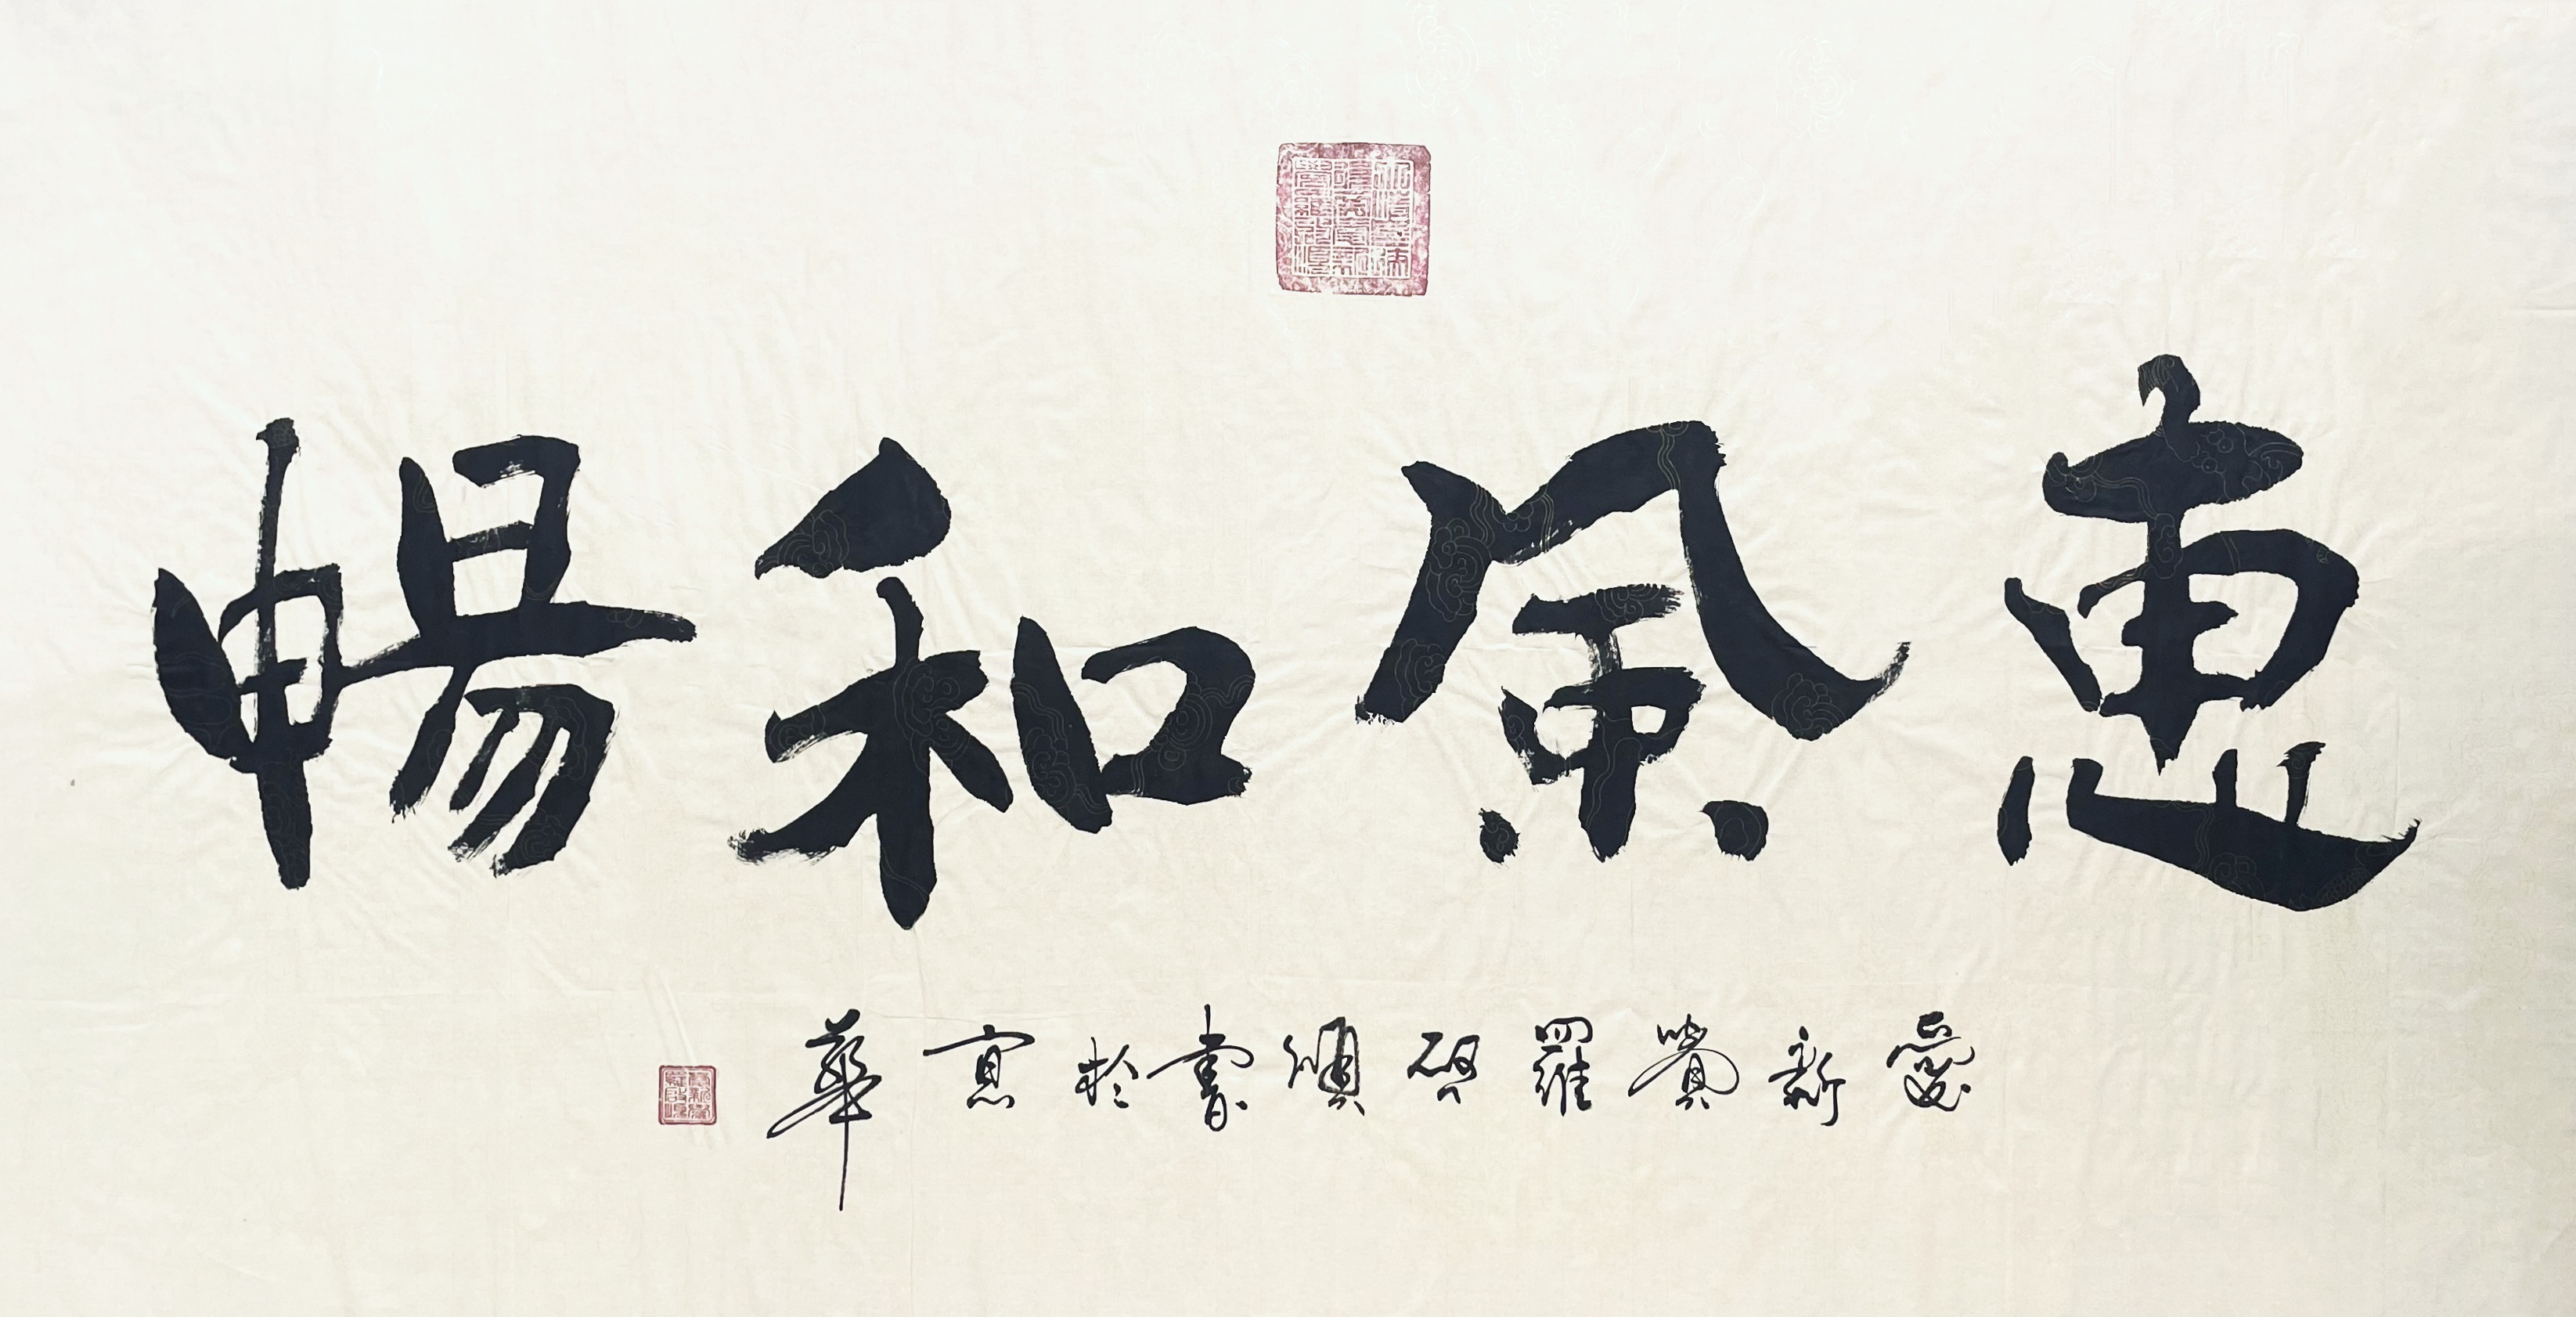 惠風和暢
愛新覺羅啓順書於京華